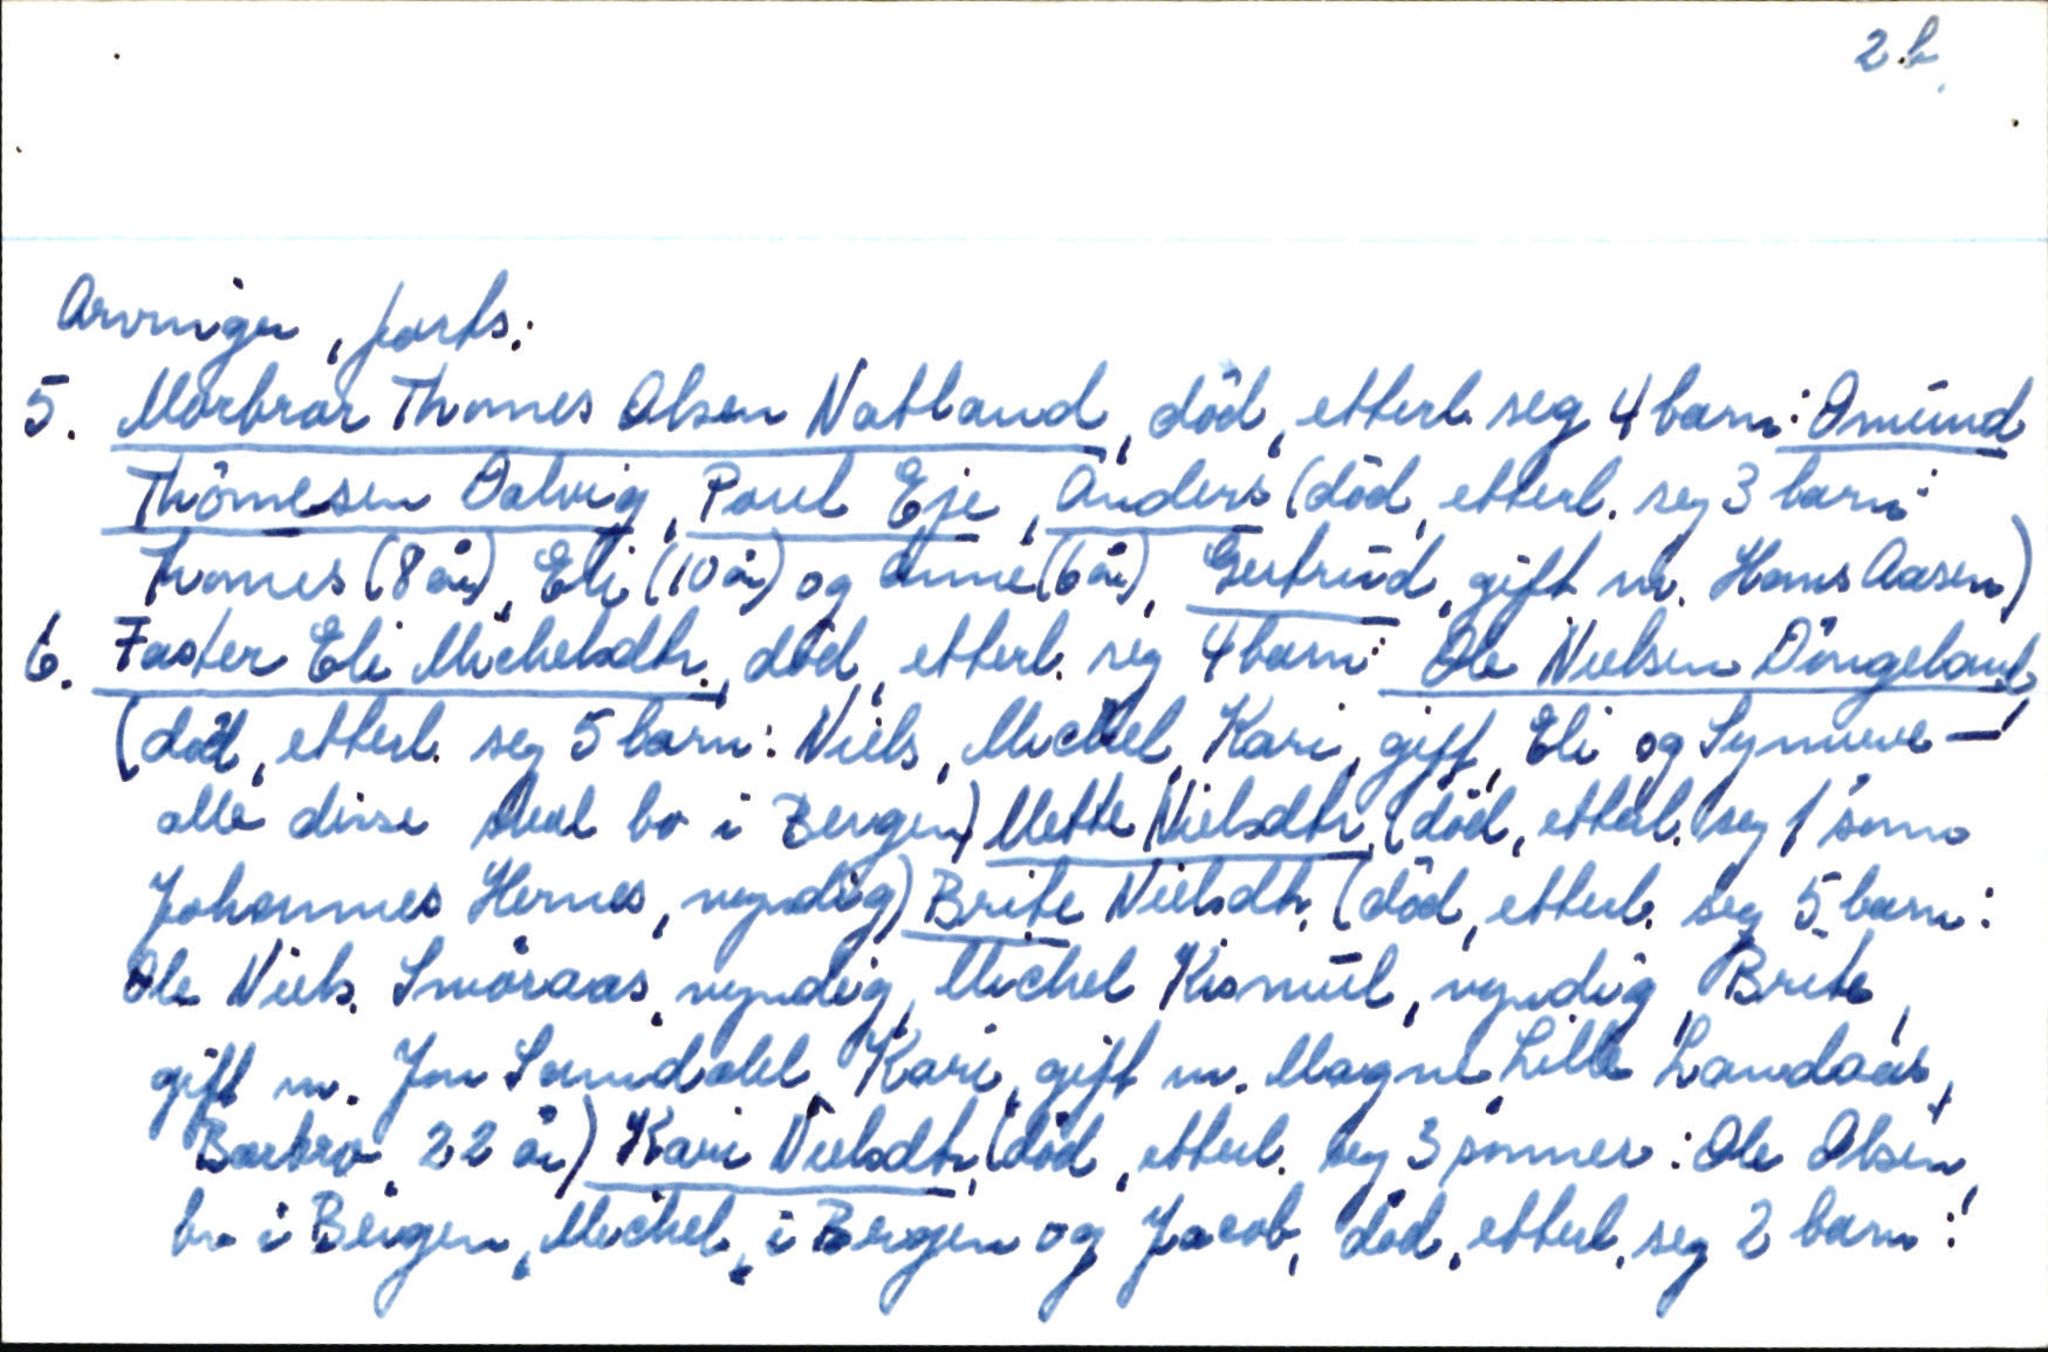 2.b.
Arvinger, forts:
5. Morbror Thomes Olsen Natland, död, etterl. seg 4 barn: Omund
Thomesen Dalvig, Poul Eje, Anders (död, etterl. seg 3 barn:
Thomes (8 år), Eli (10 år) og Anne (6 år), Gertrud, gift m. Hans Aasen)
6. Faster Eli Michelsdtr., död, etterl. seg 4 barn: Ole Nielsen Döngeland,
(död, etterl. seg 5 barn: Niels, Michel, Kari, gift, Eli og Synneve —
alle disse skal bo i Bergen) Mette Nielsdtr. (död, etterl. seg 1 sönn
Johannes Hernes, myndig) Brite Nielsdtr. (död, etterl. seg 5 barn:
Ole Niels. Smöraas, myndig, Michel Kismul, myndig, Brite,
gift m. Jon Samdahl, Kari, gift m. Magne Lille Landaas,
Barbro, 22 år) Kari Nielsdtr, (död, etterl. seg 3 sönner: Ole Olsen,
bor i Bergen, Michel, i Bergen og Jacob, död, etterl. seg 2 barn: